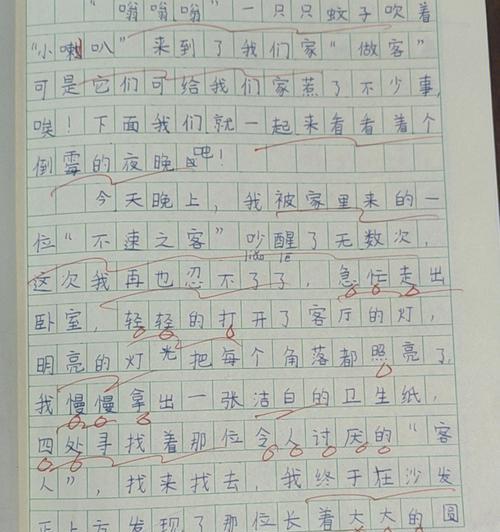 “嗡嗡嗡”一只只蚊子吹着
“小喇叭”来到了我们家“做客”
可是它们可给我们家惹了不少事,
唉!下面我们就一起来看看着个
倒霉的夜晚吧!
今天晚上,我被家里来的一
位“不速之客”吵醒了无数次,
liǎo le
这次我再也忍不了了,急忙走出
卧室,轻轻的打开了客厅的灯,
明亮的灯光把每个角落都照亮了,
我慢慢拿出一张洁白的卫生纸,
四处寻找着那位令人讨厌的“客
人”,找来找去,我终于在沙发
正上方发现了那位长着大大的圆